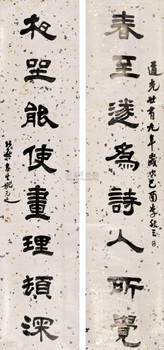 道光廿有九年歲次己酉季秋
春至遂為詩人所覺
夜坐能使畫理頓深
姚元之